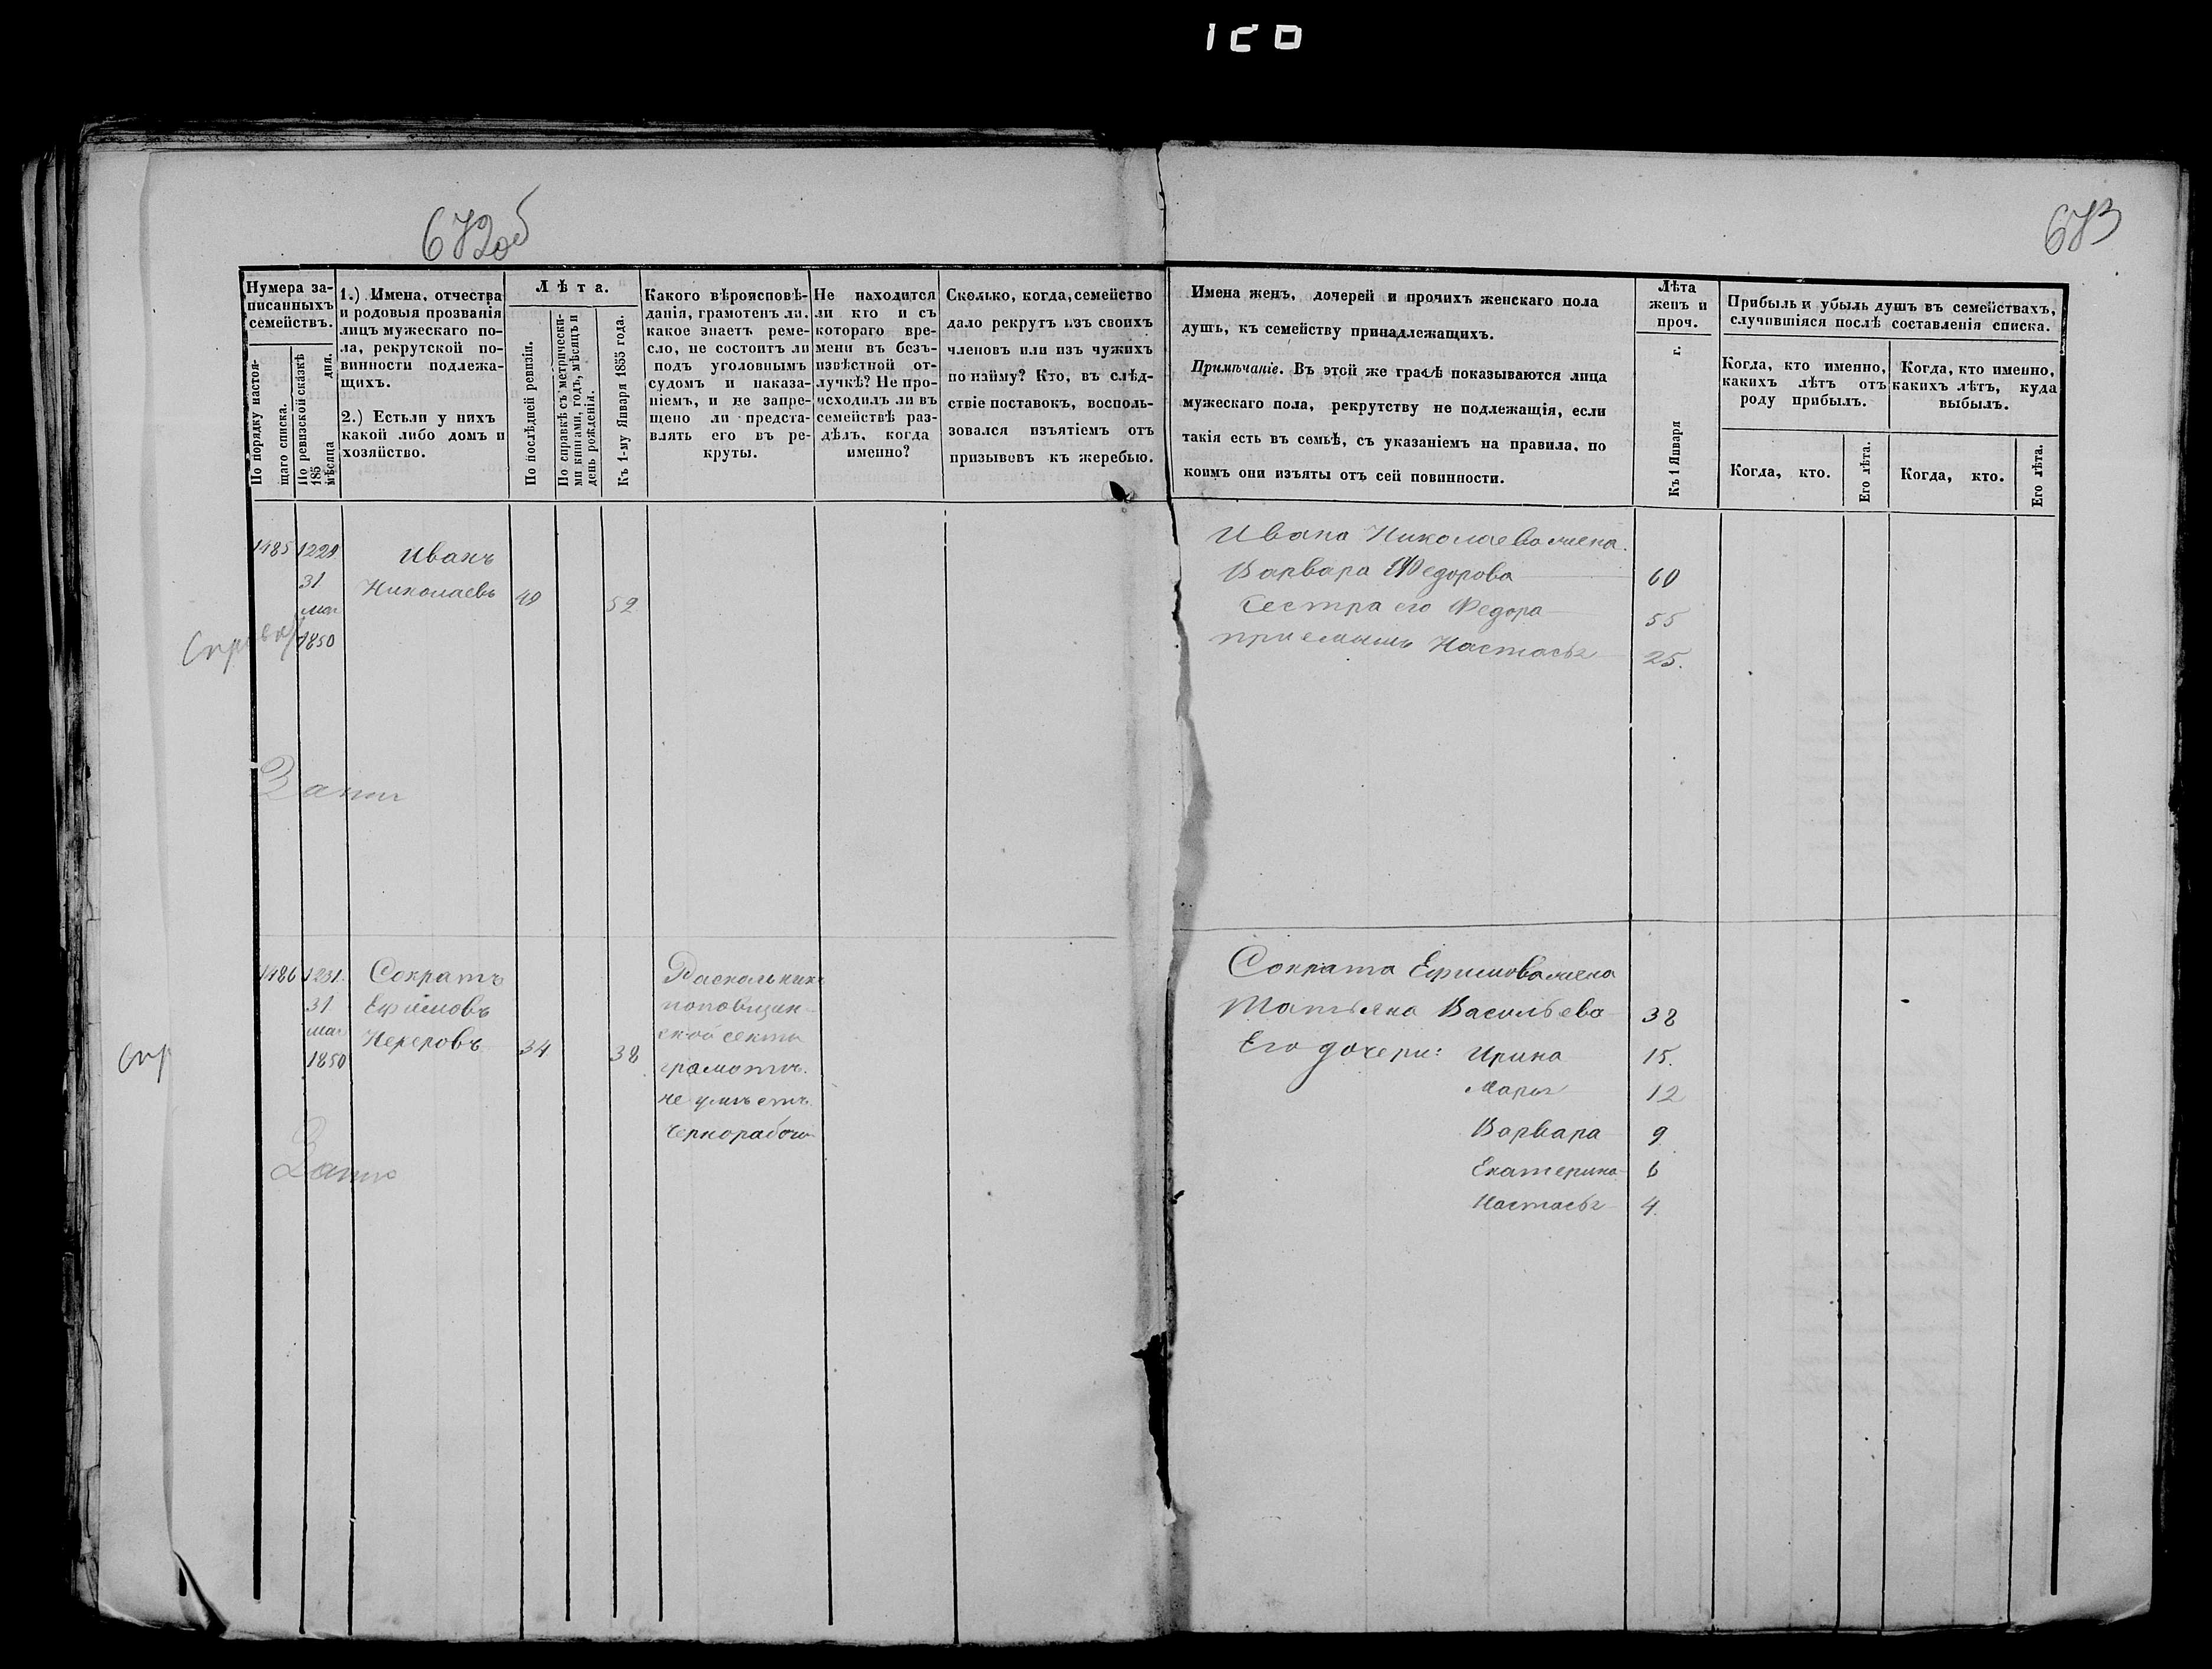 672об
673
Нумера записанныхъ семействъ.
По порядку настоящаго списка.
По ревизской сказкѣ 185 мѣсяца дня.
1.) Имена, отчества и родовыя прозванія лицъ мужескаго пола, рекрутской повинности подлежащихъ.
2.) Естьли у нихъ какой либо домъ и хозяйство.
Лѣта.
По послѣдней ревизіи.
По справкѣ съ метрическими книгами, годъ, мѣсяцъ и день рожденія.
Къ 1-му Января 1855 года.
Какого вѣроисповѣданія, грамотенъ ли. какое знаетъ ремесло, не состоитъ ли подъ уголовнымъ судомъ и наказаніемъ, и не запрещено ли представлять его въ рекруты.
Не находится ли кто и съ котораго времени въ безъизвѣстной отлучкѣ? Не происходилъ ли въ семействѣ раздѣлъ, когда именно?
Сколько, когда, семейство дало рекрутъ изъ своихъ членовъ или изъ чужихъ по найму? Кто, въ слѣдствіе поставокъ, воспользовался изъятіемъ отъ призывовъ къ жеребью.
Имена женъ, дочерей и прочихъ женскаго пола
душъ, къ семейству принадлежащихъ.
Примѣчаніе. Въ этой же графѣ показываются лица
мужескаго пола, рекрутству не подлежащія, если
такія есть въ семьѣ, съ указаніемъ на правила, по
коимъ они изъяты отъ сей повинности.
Лѣта женъ и проч.
Къ 1 Января г.
Прибыль и убыль душъ въ семействахъ, случившіяся послѣ составленія списка.
Когда, кто именно, какихъ лѣтъ отъ роду прибылъ.
Когда, кто именно, какихъ лѣтъ, куда выбылъ.
Когда, кто.
Его лѣта.
Когда, кто.
Его лѣта.
1485 1229 Иванъ
31 Николаевъ 49 52
мая
1850
Ивана Николаева жена
Варвара Федорова 60
Сестра его Федора 55
приемышъ Настасья 25.
1486 1231. Сократъ
31 Ефимовъ
мая
1850 34 38
Раскольникъ
поповщин-
ской секты
грамотѣ
не умѣетъ
Чернорабочій
Сократа Ефимова жена
Татьяна Васильева 38
Его дочери: Ирина 15.
Марья 12
Варвара 9
Екатерина 6
Настасья 4.